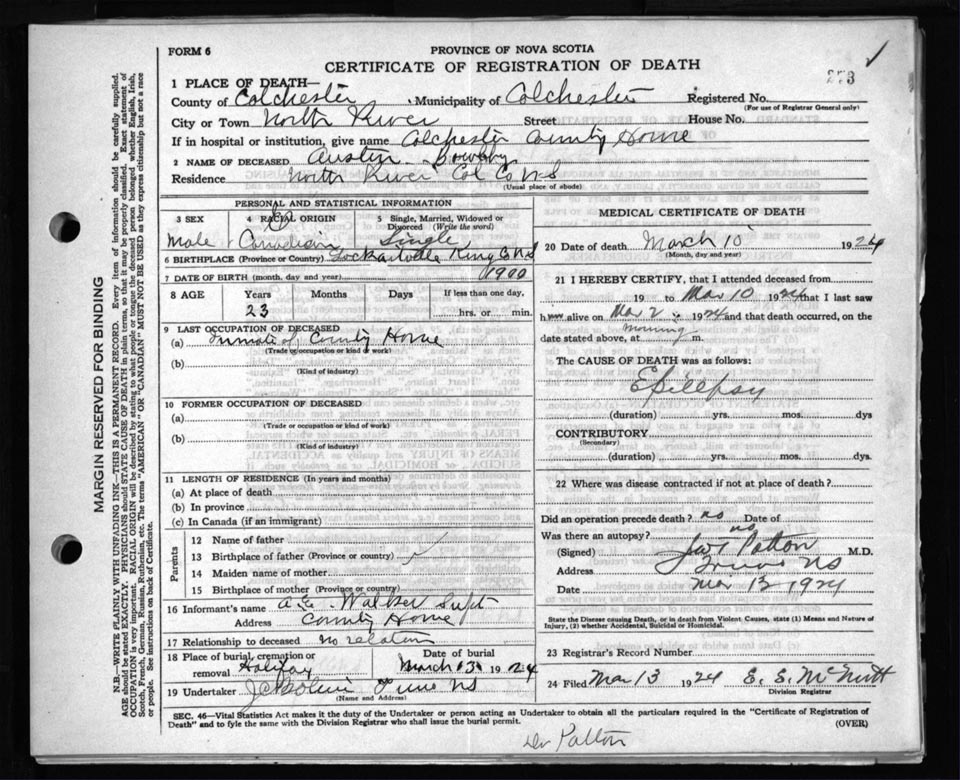 FORM 6
PROVINCE OF NOVA SCOTIA
CERTIFICATE OF REGISTRATION OF DEATH
273
1 PLACE OF DEATH—
County of Colchester, Municipality of Colchester Registered No.
(For use of Registrar General only)
City or Town North River Street House No.
If in hospital or institution, give name Colchester County Home
2 NAME OF DECEASED Austin
Residence North River Col Co N S
(Usual place of abode)
PERSONAL AND STATISTICAL INFORMATION
3 SEX 4 RACIAL ORIGIN 5 Single, Married, Widowed or Divorced (Write the word)
Male Canadian Single
6 BIRTHPLACE (Province or Country) Lockartville Kings Co N S
7 DATE OF BIRTH (month, day and year) 1900
8 AGE Years Months Days If less than one day,
23 hrs. or min.
9 LAST OCCUPATION OF DECEASED
(a) Inmate of County Home
(Trade or occupation or kind of work)
(b)
(Kind of industry)
10 FORMER OCCUPATION OF DECEASED
(a)
(Trade or occupation or kind of work)
(b)
(Kind of industry)
11 LENGTH OF RESIDENCE (In years and months)
(a) At place of death
(b) In province
(c) In Canada (if an immigrant)
Parents
12 Name of father
13 Birthplace of father (Province or country)
14 Maiden name of mother
15 Birthplace of mother (Province or country)
16 Informant's name Walker Supt
Address County Home
17 Relationship to deceased no relation
18 Place of burial, cremation or removal Halifax
Date of burial March 13 1924
19 Undertaker Truro N S
(Name and Address)
MEDICAL CERTIFICATE OF DEATH
20 Date of death March 10 1924
(Month, day and year)
21 I HEREBY CERTIFY, that I attended deceased from
19 to Mar 10 1924 that I last saw
h alive on Mar 2 1924 and that death occurred, on
date stated above, at morning m.
The CAUSE OF DEATH was as follows:
Epilepsy
(duration) yrs. mos. dys
CONTRIBUTORY.
(Secondary)
(duration) yrs. mos. dys.
22 Where was disease contracted if not at place of death?
Did an operation precede death? no Date of
Was there an autopsy? no
(Signed) Patton M.D.
Address Truro N S
Date Mar 13 1924
State the Disease causing Death, or in death from Violent Causes, state (1) Means and Nature of Injury, (2) whether Accidental, Suicidal or Homicidal.
23 Registrar's Record Number
24 Filed Mar 13 1924 E. S. McNutt
Division Registrar
SEC. 46—Vital Statistics Act makes it the duty of the Undertaker or person acting as Undertaker to obtain all the particulars required in the "Certificate of Registration of
Death" and to fyle the same with the Division Registrar who shall issue the burial permit.
(OVER)
Dr Patton
MARGIN RESERVED FOR BINDING
N.B.—WRITE PLAINLY WITH UNFADING INK—THIS IS A PERMANENT RECORD. Every item of information should be carefully supplied.
AGE should be stated EXACTLY. PHYSICIANS should STATE CAUSE OF DEATH in plain terms, so that it may be properly classified. Exact statement of
OCCUPATION is very important. RACIAL ORIGIN will be described by stating to what people or tongue the deceased person belonged, whether English, Irish,
Scotch, French, German, Russian, Ruthenian, etc. The terms "AMERICAN" OR "CANADIAN" MUST NOT BE USED as they express citizenship but not a race
or people. See instructions on back of Certificate.